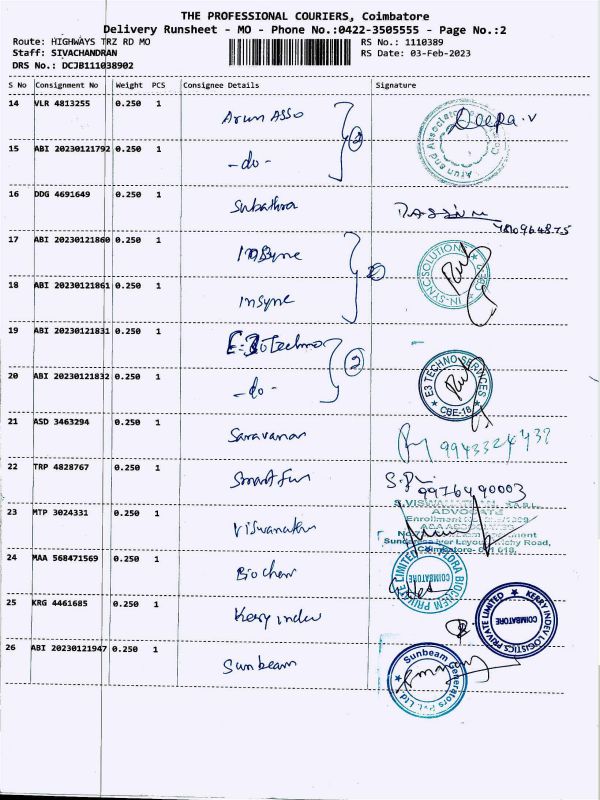 THE PROFESSIONAL COURIERS, Coimbatore
Delivery Runsheet - MO - Phone No.:0422-3505555 - Page No.:2
Route: HIGHWAYS TRZ RD MO RS No.: 1110389
Staff: SIVACHANDRAN RS Date: 03-Feb-2023
DRS No.: DCJB111038902
S No Consignment No Weight PCS Consignee Details Signature
14 VLR 4813255 0.250 1 Arun Asso 2 Deepa.v
Arun and Associates
15 ABI 20230121792 0.250 1 -do-
16 DDG 4691649 0.250 1 Subathra
17 ABI 20230121860 0.250 1 Insync 2
IN-SYNC SOLUTIONS
18 ABI 20230121861 0.250 1 Insync
19 ABI 20230121831 0.250 1 E3 Techno 2
E3 TECHNO SERVICES
CBE-18
20 ABI 20230121832 0.250 1 -do-
21 ASD 3463294 0.250 1 Saravanan
22 TRP 4828767 0.250 1 Smart Fun
9976490003
23 MTP 3024331 0.250 1 Viswanathan
ADVOCATE
Enrollment
Road,
Coimbatore-
24 MAA 568471569 0.250 1 Biochem
BIOCHEM PRIVATE LIMITED
COIMBATORE
25 KRG 4461685 0.250 1 Kerry indev
KERRY INDEV LOGISTICS PRIVATE LIMITED
COIMBATORE
26 ABI 20230121947 0.250 1 Sunbeam
Sunbeam Generators Pvt. Ltd.